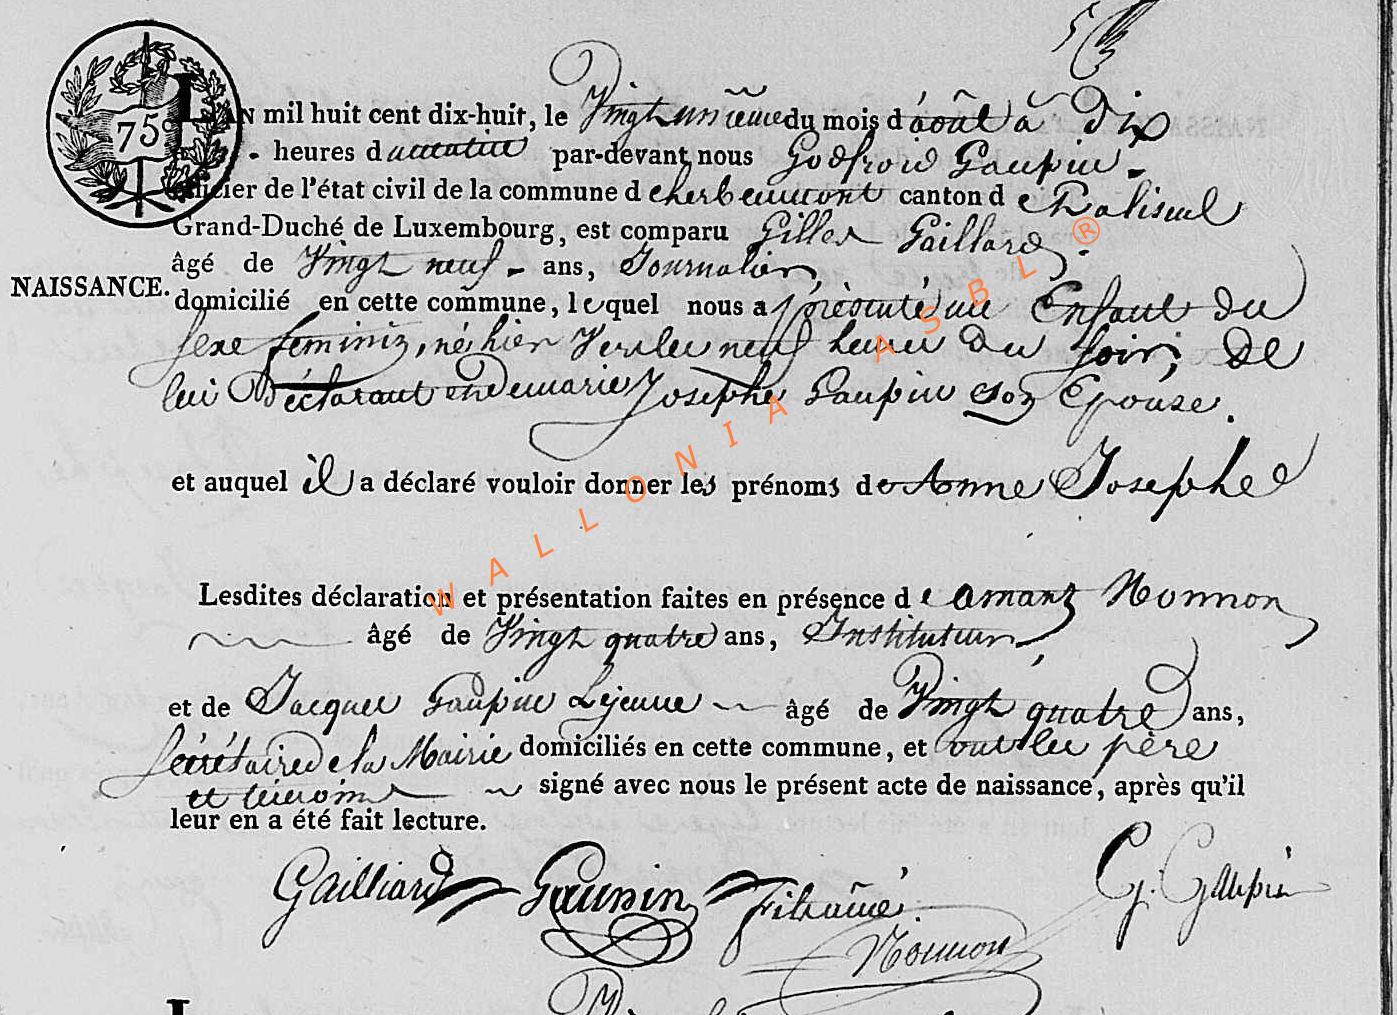 75
L'AN mil huit cent dix-huit, le Vingt unieme du mois d'août à Dix
heures du matin par-devant nous Godfroid Gaupin
officier de l'état civil de la commune d'herbeumont canton de Paliseul
Grand-Duché de Luxembourg, est comparu Gilles Gaillard
âgé de Vingt neuf ans, Journalier,
NAISSANCE.
domicilié en cette commune, lequel nous a présenté un Enfant du
sexe feminin, né hier Vers les neuf heures Du soir, De
lui Déclarant et De marie Josephe Gaupin son Epouse.
et auquel il a déclaré vouloir donner les prénoms de Anne Josephe
Lesdites déclaration et présentation faites en présence de amant Nonnon
âgé de Vingt quatre ans, Instituteur,
et de Jacques Gaupin Lejeune âgé de Vingt quatre ans,
Sécrétaire de la Mairie domiciliés en cette commune, et ont les père
et témoins signé avec nous le présent acte de naissance, après qu'il
leur en a été fait lecture.
Gailliard Gaupin G. Gaupin
Nonnon
WALLONIA ASBL ®